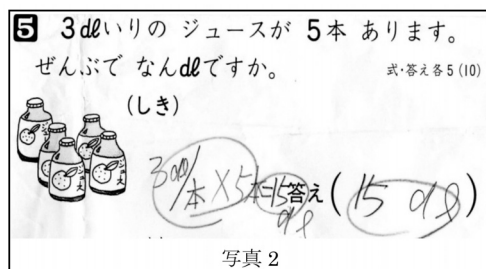 5 3dlいりの ジュースが 5本 あります。
ぜんぶで なんdlですか。
式・答え各5(10)
(しき)
3dl/本×5本=15dl
答え(15 dl)
写真2